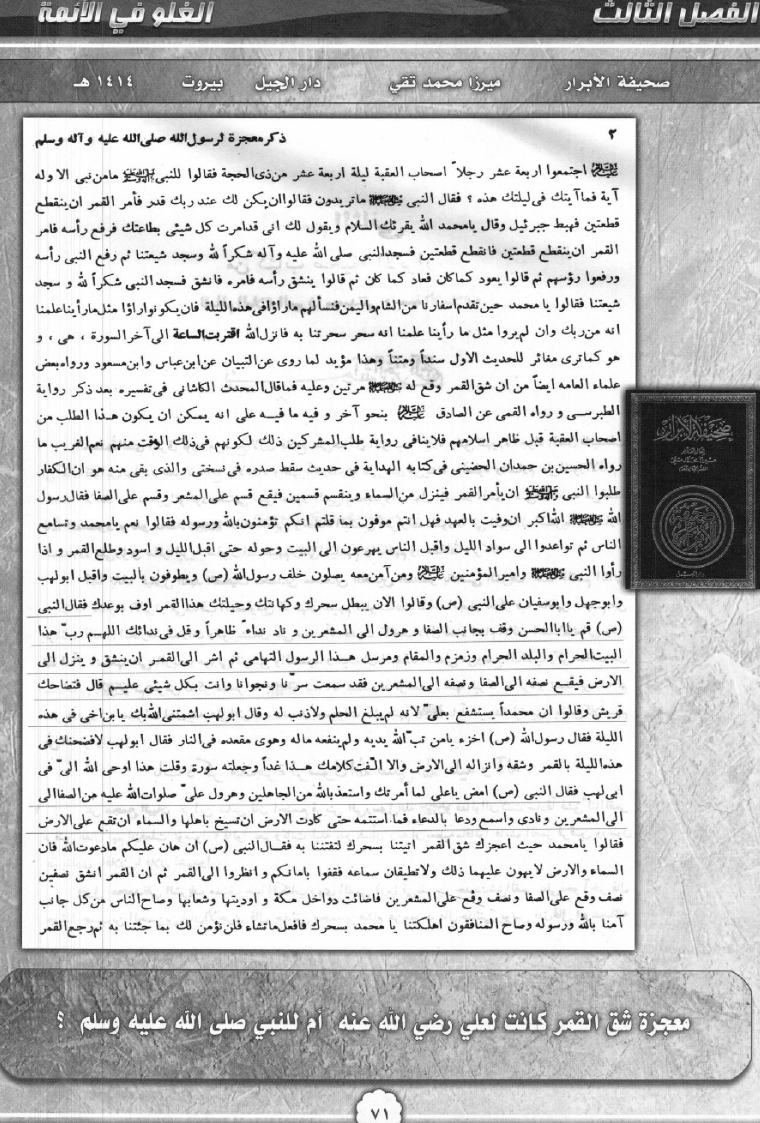 الفصل الثالث
الغلو في الأئمة
صحيفة الأبرار ميرزا محمد تقي دار الجيل بيروت ١٤١٤ هـ
٢ ذكر معجزة لرسول الله صلى الله عليه وآله وسلم
اجتمعوا اربعة عشر رجلاً اصحاب العقبة ليلة اربعة عشر من ذى الحجة فقالوا للنبى مامن نبى الا وله
آية فما آيتك فى ليلتك هذه ؟ فقال النبى ماتريدون فقالوا ان يكن لك عند ربك قدر فأمر القمر ان ينقطع
قطعتين فهبط جبرئيل وقال يامحمد الله يقرئك السلام ويقول لك انى قدامرت كل شيئى بطاعتك فرفع رأسه فامر
القمر ان ينقطع قطعتين فانقطع قطعتين فسجد النبى صلى الله عليه وآله شكراً لله وسجد شيعتنا ثم رفع النبى رأسه
ورفعوا رؤسهم ثم قالوا يعود كما كان فعاد كما كان ثم قالوا ينشق رأسه فامره فانشق فسجد النبى شكراً لله و سجد
شيعتنا فقالوا يا محمد حين تقدم اسفارنا من الشام واليمن فنسألهم مارأوا فى هذه الليلة فان يكونوا رأوا مثل مارأينا علمنا
انه من ربك وان لم يروا مثل ما رأينا علمنا انه سحر سحرتنا به فانزل الله اقتربت الساعة الى آخر السورة ، هى ، و
هو كما ترى مغائر للحديث الاول سنداً ومتناً وهذا مؤيد لما روى عن التبيان عن ابن عباس وابن مسعود ورواه بعض
علماء العامه ايضاً من ان شق القمر وقع له مرتين وعليه فماقال المحدث الكاشانى فى تفسيره بعد ذكر رواية
الطبرسى و رواه القمى عن الصادق بنحو آخر و فيه ما فيه على انه يمكن ان يكون هذا الطلب من
اصحاب العقبة قبل ظاهر اسلامهم فلاينافى رواية طلب المشركين ذلك لكونهم فى ذلك الوقت منهم نعم الغريب ما
رواه الحسين بن حمدان الحضينى فى كتابه الهداية فى حديث سقط صدره فى نسختى والذى بقى منه هو ان الكفار
طلبوا النبى ان يأمر القمر فينزل من السماء وينقسم قسمين فيقع قسم على المشعر وقسم على الصفا فقال رسول
الله الله اكبر ان وفيت بالعهد فهل انتم موفون بما قلتم انكم تؤمنون بالله ورسوله فقالوا نعم يامحمد وتسامع
الناس ثم تواعدوا الى سواد الليل واقبل الناس يهرعون الى البيت وحوله حتى اقبل الليل و اسود وطلع القمر و اذا
رأوا النبى وامير المؤمنين ومن آمن معه يصلون خلف رسول الله (ص) ويطوفون بالبيت واقبل ابولهب
وابوجهل وابوسفيان على النبى (ص) وقالوا الان يبطل سحرك وكهانتك وحيلتك هذا القمر اوف بوعدك فقال النبى
(ص) قم يا ابا الحسن وقف بجانب الصفا و هرول الى المشعرين و ناد نداءً ظاهراً وقل فى ندائك اللهم رب هذا
البيت الحرام والبلد الحرام وزمزم والمقام ومرسل هذا الرسول التهامى ثم اشر الى القمر ان ينشق و ينزل الى
الارض فيقع نصفه الى الصفا ونصفه الى المشعرين فقد سمعت سرّنا ونجوانا وانت بكل شيئى عليم قال فتضاحك
قريش وقالوا ان محمداً يستشفع بعلىّ لانه لم يبلغ الحلم ولاذنب له وقال ابولهب اشمتنى الله بك يابن اخى فى هذه
الليلة فقال رسول الله (ص) اخزه يامن تبّ الله يديه ولم ينفعه ماله وهوى مقعده فى النار فقال ابولهب لافضحنك فى
هذه الليلة بالقمر وشقه وانزاله الى الارض والا الّفت كلامك هذا غداً وجعلته سورة وقلت هذا اوحى الله الىّ فى
ابى لهب فقال النبى (ص) امض ياعلى لما أمرتك واستعذ بالله من الجاهلين وهرول علىّ صلوات الله عليه من الصفا الى
الى المشعرين ونادى واسمع ودعا بالدعاء فما استتمه حتى كادت الارض ان تسيخ باهلها والسماء ان تقع على الارض
فقالوا يامحمد حيث اعجزك شق القمر اتيتنا بسحرك لتفتننا به فقال النبى (ص) ان هان عليكم مادعوت الله فان
السماء والارض لايهون عليهما ذلك ولاتطيقان سماعه فقفوا باماكنكم و انظروا الى القمر ثم ان القمر انشق نصفين
نصف وقع على الصفا ونصف وقع على المشعرين فاضائت دواخل مكة و اوديتها وشعابها وصاح الناس من كل جانب
آمنا بالله ورسوله وصاح المنافقون اهلكتنا يا محمد بسحرك فافعل ماتشاء فلن نؤمن لك بما جئتنا به ثم رجع القمر
صحيفة الأبرار
معجزة شق القمر كانت لعلي رضي الله عنه أم للنبي صلى الله عليه وسلم ؟
٧١